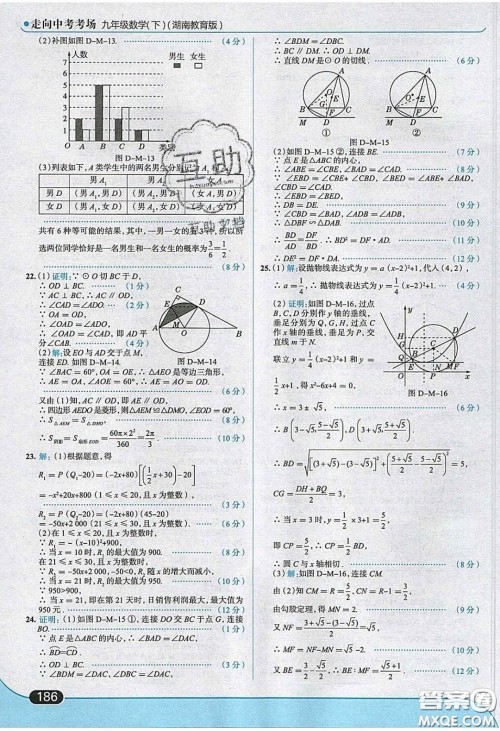 走向中考考场 九年级数学(下)(湖南教育版)
(2)补图如图 D-M-13 (4分)
人数
男生 女生
5
4
3
2
1
O A B C D 类别
图 D-M-13
(3)列表如下,A 类学生中的两名男生分别记为
男 A₁
男 D (男 A₁,男 D)
女 D (男 A₁,女 D)
共有 6 种等可能的结果,其中,一男一女的有 3 种,所以所
选两位同学恰好是一名男生和一名女生的概率为 3/6 = 1/2
(8分)
22. (1)证明:∵⊙O 切 BC 于 D,
∴OD⊥BC. (1分)
∵AC⊥BC,∴AC∥OD,
∴∠CAD=∠ADO. (2分)
∵OA=OD,
∴∠OAD=∠ADO,
∴∠OAD=∠CAD,即 AD 平
分∠CAB. (4分)
图 D-M-14
(2)解:设 EO 与 AD 交于点 M,
连接 ED. 如图 D-M-14.
∵∠BAC=60°,OA=OE,∴△AEO 是等边三角形,
∴AE=OA,∠AOE=60°,∴AE=AO=OD.
(6分)
又由(1)知,AC∥OD,即 AE∥OD,
∴四边形 AEDO 是菱形,则△AEM≌△DMO,∠EOD=60°,
∴S△AEM=S△DMO,
∴S阴影=S扇形EOD=60π×2²/360=2π/3. (8分)
23. 解:(1)根据题意,得
R₁=P(Q₁-20)=(-2x+80)[(1/2x+30)-20]
=-x²+20x+800(1≤x≤20,且x为整数),
(3分)
R₂=P(Q₂-20)=(-2x+80)(45-20)
=-50x+2 000(21≤x≤30,且x为整数). (6分)
(2)在 1≤x≤20,且 x 为整数时,
∵R₁=-(x-10)²+900,
∴当 x=10 时,R₁ 的最大值为 900. (8分)
在 21≤x≤30,且 x 为整数时,
∵R₂=-50x+2 000,-50<0,R₂ 随 x 的增大而减小,
∴当 x=21 时,R₂ 的最大值为 950. (10分)
∵950>900,
∴当 x=21,即在第 21 天时,日销售利润最大,最大值为
950 元. (12分)
24. 证明:(1)如图 D-M-15①,连接 DO 交 BC 于点 G,连接
BO.
∵点 E 是△ABC 的内心,
∴∠BAD=∠DAC. (2分)
∴BD=CD.
∴OD⊥BC.
∵∠BDM=∠DAC,∠DAC=∠DBC, (4分)
∴∠BDM=∠DBC.
∴BC∥DM. ∴OD⊥DM.
∴直线 DM 是⊙O 的切线. (6分)
① ②
图 D-M-15
(2)如图 D-M-15②,连接 BE. (7分)
∵点 E 是△ABC 的内心,
∴∠BAE=∠CAE=∠CBD,∠ABE=∠CBE.
(8分)
∴∠EBD=∠CBE+∠CBD,∠BED=∠ABE+∠BAD,
∴∠EBD=∠BED.
∴DB=DE. (9分)
∵∠DBF=∠DAB,∠BDF=∠ADB,
∴△DBF∽△DAB. (10分)
∴BD/AD=DF/BD. ∴BD²=DF·DA. (11分)
∴DE²=DF·DA. (12分)
25. (1)解:设抛物线表达式为 y=a(x-2)²+1,代入(4,2),
∴a=1/4,∴抛物线表达式为 y=1/4(x-2)²+1. (4分)
(2)证明:如图 D-M-16,过点
B,C,D 分别作 y 轴的垂线,
垂足分别为 Q,G,H,过 C 作
x 轴的垂线,垂足为 P,交直
线 m 于 N.
联立 y=1/4(x-2)²+1 和 y=
1/2x+1,得 x²-6x+4=0.
图 D-M-16
∴x=3±√5, (6分)
∴B(3-√5,5/2-√5/2),D(3+√5,5/2+√5/2).
∴BD=√[(3+√5)-(3-√5)]²+[(5+√5)/2-(5-√5)/2]²=5,
CG=(DH+BQ)/2=3. (7分)
∴当 x=3 时,y=5/2.
即 CP=5/2,∴CP=1/2BD. (8分)
∴圆 C 与 x 轴相切. (9分)
(3)解:如图 D-M-16,连接 CM.
由(2)知,CM=R=5/2,CN=3/2, (10分)
由勾股定理,得 MN=2. (11分)
∴MF=NF-MN=√5-2.
又∵BE=(3-√5)/2,∴BE:MF=(√5+1)/2. (12分)
186